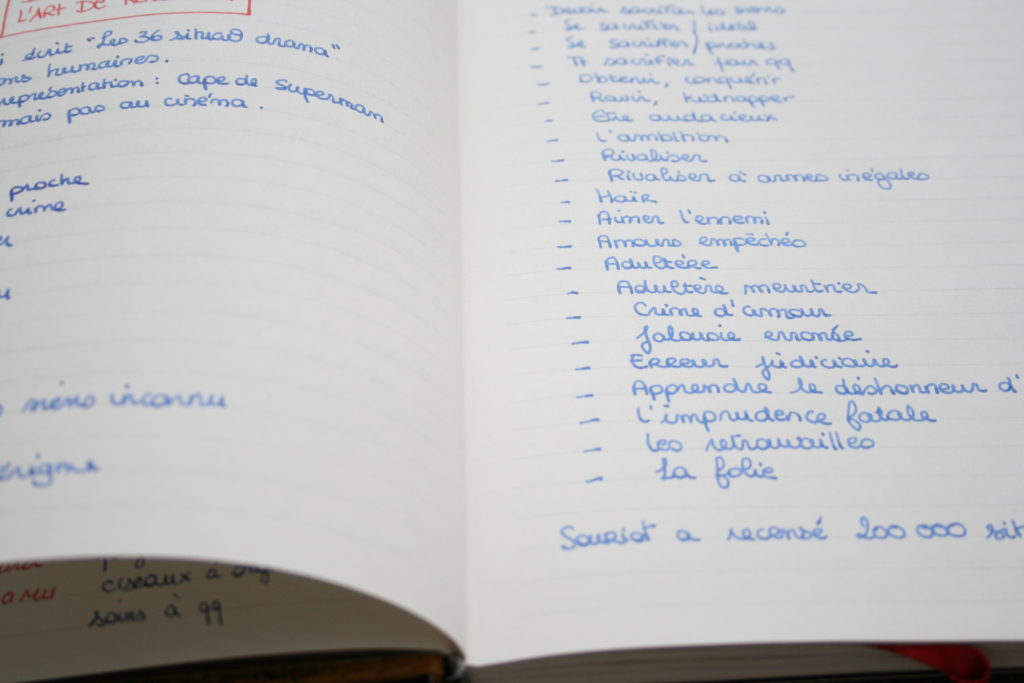 L'ART DE
écrit "Les 36 situaθ drama"
ons humaines.
représentation : Cape de Superman
mais pas au cinéma.
proche
crime
siens inconnu
énigme
ciseaux à
soins à qq
- Devoir sacrifier les siens
- Se sacrifier / idéal
- Se sacrifier / proches
- Tt sacrifier pour qq
- Obtenir, conquérir
- Ravir, kidnapper
- Être audacieux
- L'ambition
- Rivaliser
- Rivaliser à armes inégales
- Haïr
- Aimer l'ennemi
- Amours empêchés
- Adultère
- Adultère meurtrier
- Crime d'amour
- Jalousie erronée
- Erreur judiciaire
- Apprendre le déshonneur d'
- L'imprudence fatale
- Les retrouvailles
- La folie
Souriot a recensé 200 000 sit